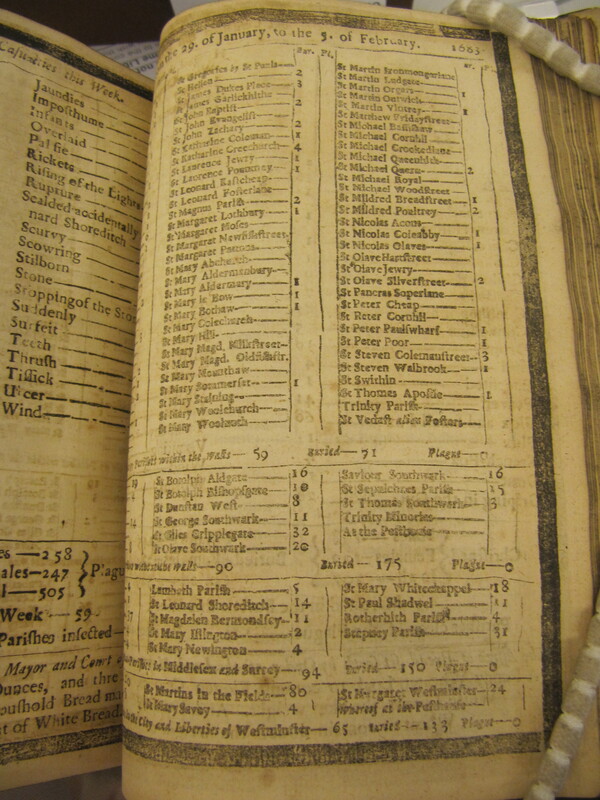 Casualties this Week.
Jaundies
Imposthume
Infants
Overlaid
Palsie
Rickets
Rising of the Lights
Rupture
Scalded accidentally
nard Shoreditch
Scurvy
Scowring
Stilborn
Stone
Stopping of the Sto
Suddenly
Surfeit
Teeth
Thrush
Tissick
Ulcer
Wind
es—258
ales—247
l—505
Plagu
Week—59
Parishes infected
Mayor and Court of
Ounces, and thre
oushold Bread ma
t of White Bread
the 29. of January, to the 5. of February. 1663
Bur. Pl.
St Gregories by St Pauls—2
St Hellen
St James Dukes Place—3
St James Garlickhithe—2
St John Baptist
St John Evangelist
St John Zachary—2
St Katharine Coleman—1
St Katharine Creechurch—4
St Lawrence Jewry—1
St Laurence Pountney—1
St Leonard Eastcheap
St Leonard Fosterlane
St Magnus Parish—2
St Margaret Lothbury—1
St Margaret Moses
St Margaret Newfishstreet
St Margaret Pattons
St Mary Abchurch
St Mary Aldermanbury
St Mary Aldermary—1
St Mary le Bow—1
St Mary Bothaw—1
St Mary Colechurch
St Mary Hill
St Mary Magd. Milkstreet
St Mary Magd. Oldfishstr.
St Mary Mounthaw
St Mary Somerset—1
St Mary Staining
St Mary Woolchurch
St Mary Woolnoth
St Martin Ironmongerlane
St Martin Ludgate
St Martin Orgars
St Martin Outwich—1
St Martin Vintrey—1
St Matthew Fridaystreet
St Michael Bassishaw
St Michael Cornhil
St Michael Crookedlane
St Michael Queenhith
St Michael Quern—2
St Michael Royal
St Michael Woodstreet
St Mildred Breadstreet—1
St Mildred Poultrey—2
St Nicolas Acons
St Nicolas Coleabby—1
St Nicolas Olaves—1
St Olave Hartstreet
St Olave Jewry
St Olave Silverstreet—2
St Pancras Soperlane
St Peter Cheap
St Peter Cornhil
St Peter Paulswharf—1
St Peter Poor—1
St Steven Colemanstreet—3
St Steven Walbrook—1
St Swithin
St Thomas Apostle—1
Trinity Parish
St Vedast alias Fosters
Parishes within the Walls—59 Buried—71 Plague—0
St Botolph Aldgate—16
St Botolph Bishopsgate—10
St Dunstan West—8
St George Southwark—11
St Giles Cripplegate—32
St Olave Southwark—20
Saviour Southwark—16
St Sepulchres Parish—15
St Thomas Southwark—3
Trinity Minories
At the Pesthouse
without the Walls—90 Buried—175 Plague—0
Lambeth Parish—5
St Leonard Shoreditch—14
St Magdalen Bermondsey—11
St Mary Islington—2
St Mary Newington—4
St Mary Whitechappel—18
St Paul Shadwel—11
Rotherhith Parish—4
Stepney Parish—31
Parishes in Middlesex and Surrey—94 Buried—150 Plague—0
St Martins in the Fields—80
St Mary Savoy—4
St Margaret Westminster—24
Whereof at the Pesthouse
the City and Liberties of Westminster—65 Buried—133 Plague—0